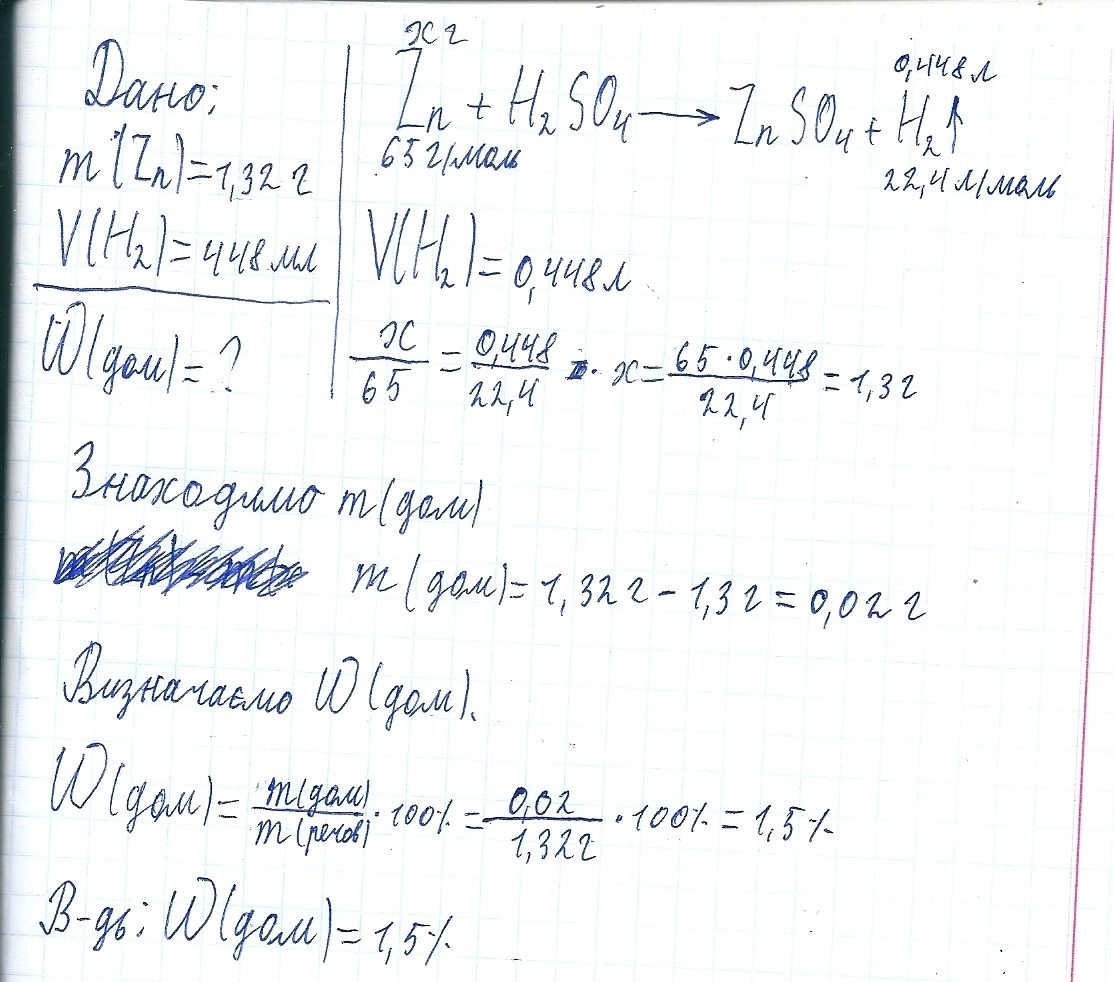 Дано:
m(Zn)=1,32 г
V(H₂)=448 мл
W(дом)=?
x г
0,448 л
Zn + H₂SO₄ → ZnSO₄ + H₂↑
65 г/моль
22,4 л/моль
V(H₂)=0,448 л
x/65 = 0,448/22,4 · x = 65·0,448/22,4 = 1,3 г
Знаходимо m(дом)
m(дом)=1,32 г - 1,3 г = 0,02 г
Визначаємо W(дом).
W(дом)= m(дом)/m(речов) · 100% = 0,02/1,32 г · 100% = 1,5%
В-дь: W(дом)=1,5%